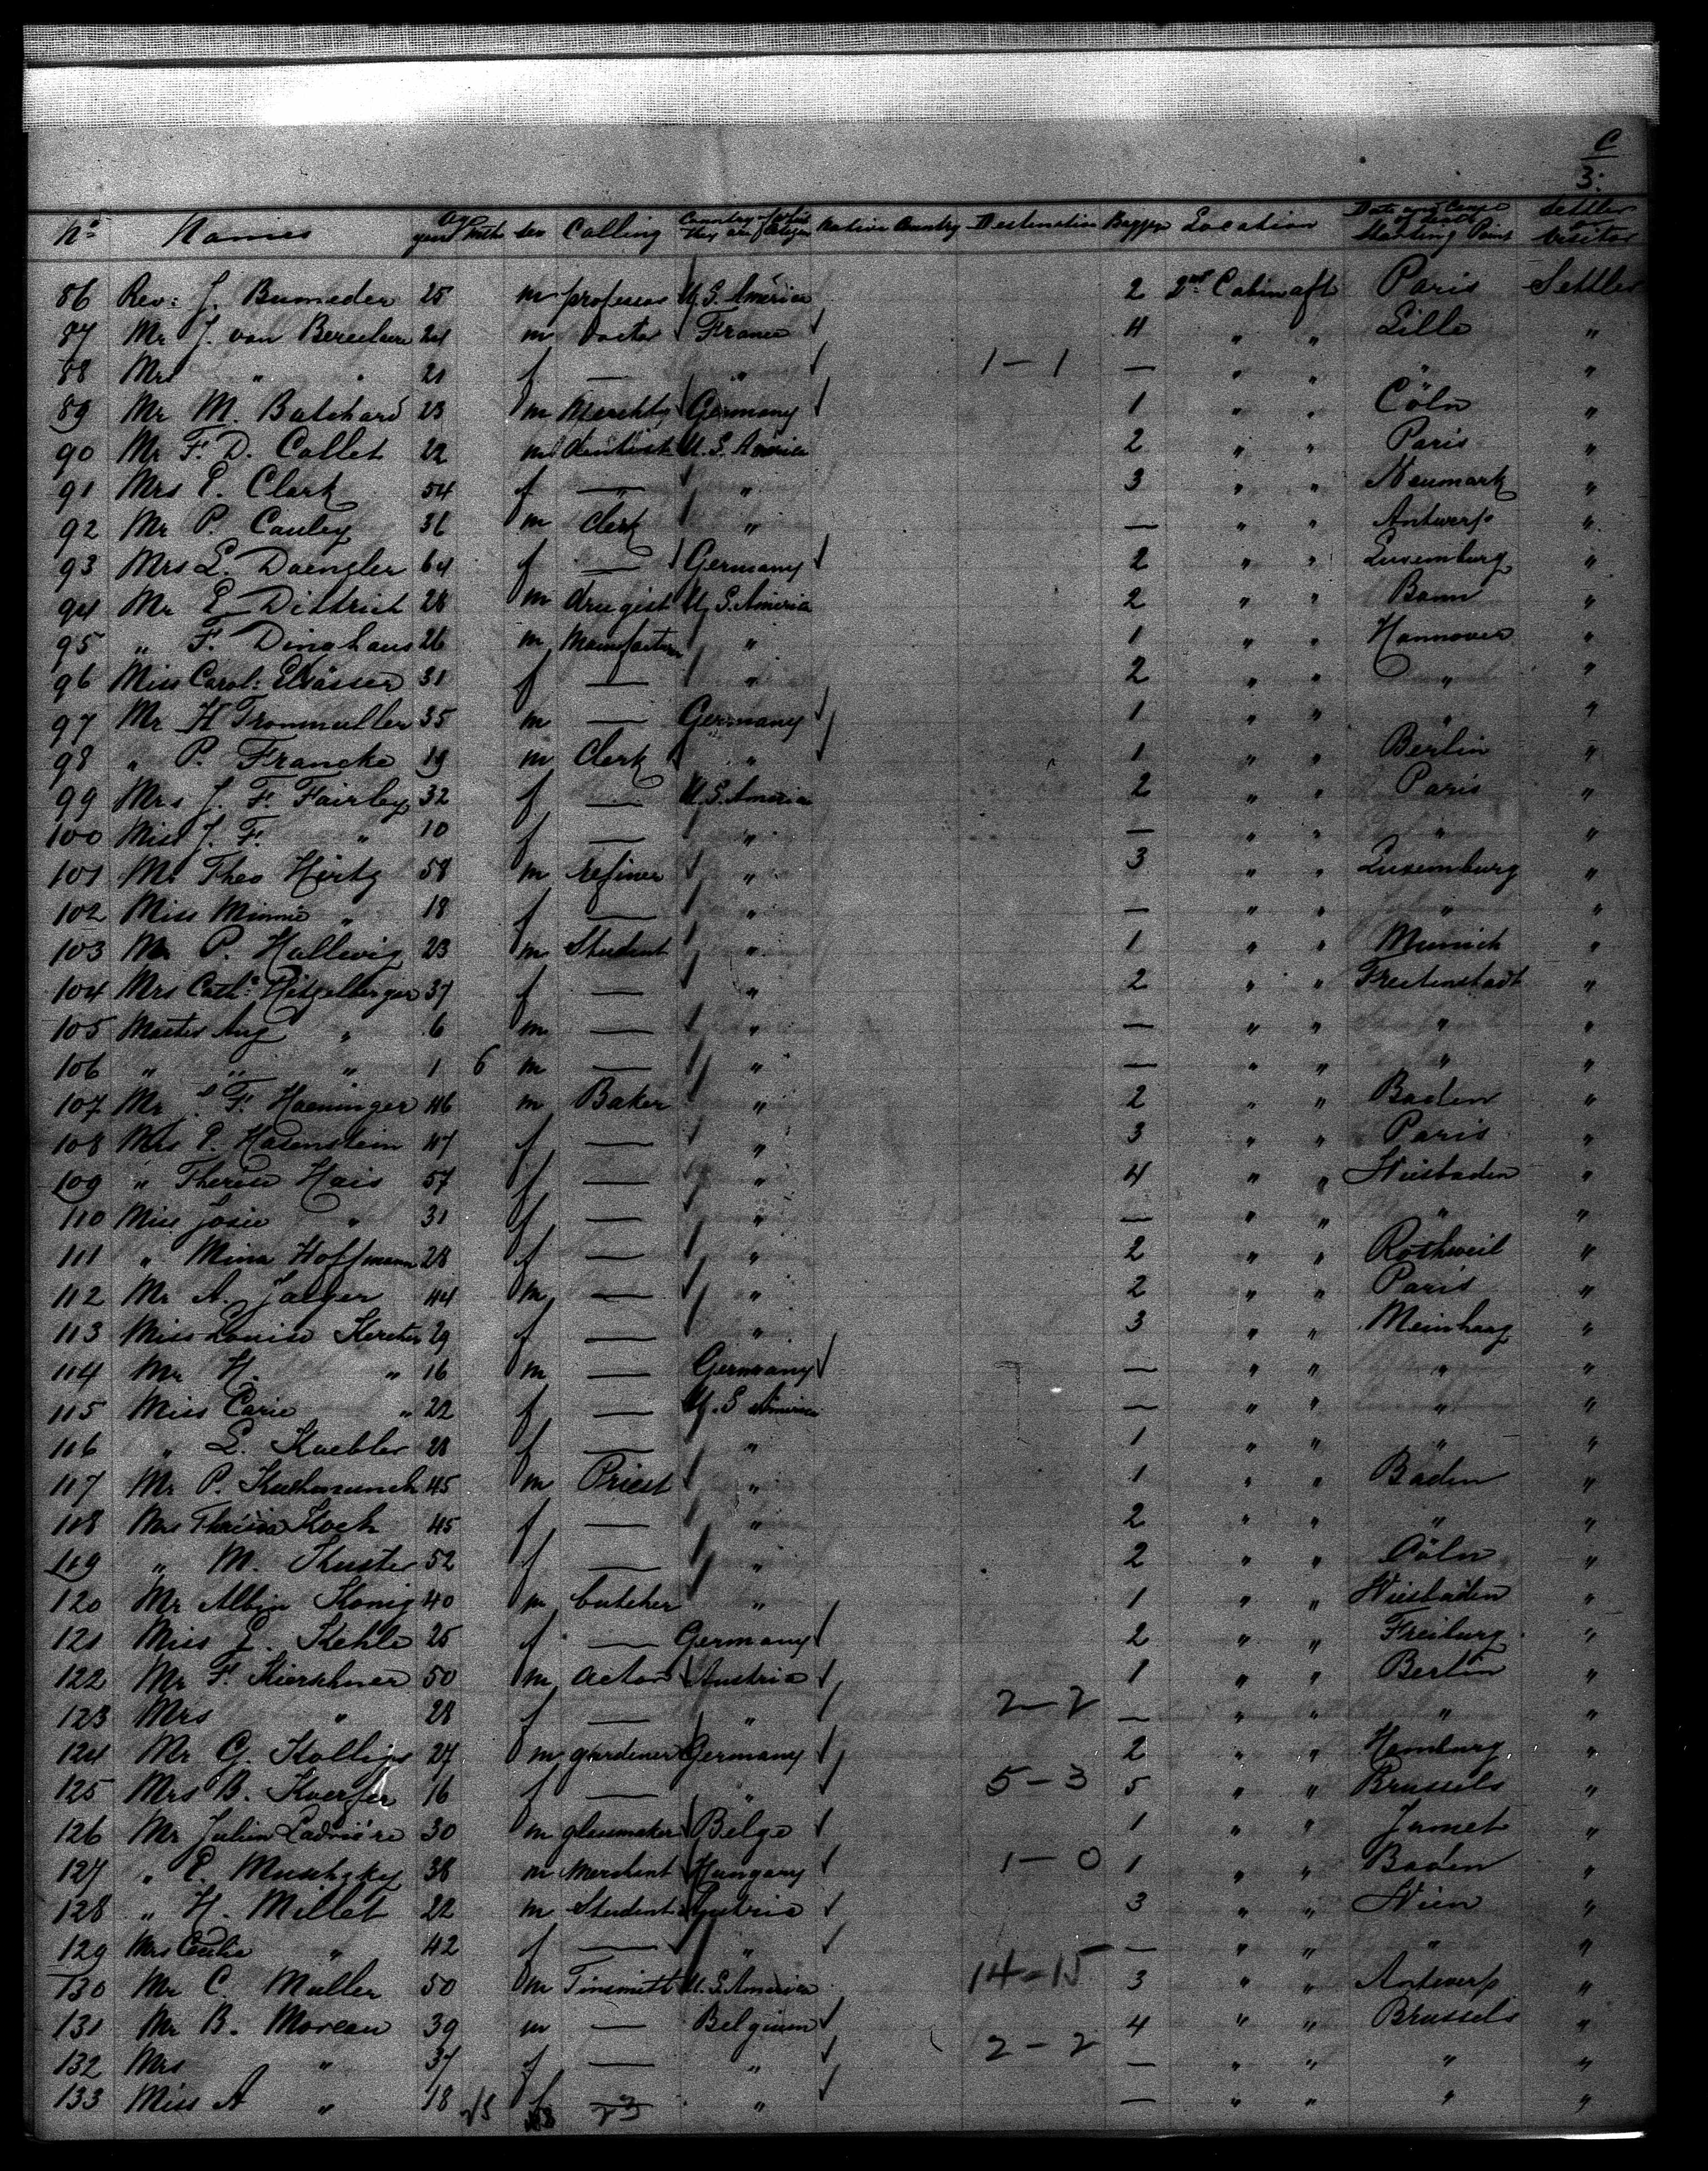 C
3:
No Names Age years Mth sex Calling Country of which they are citizens Native Country Destination Bagge Location Date and Cause of death Starting Point Settler or visitor
86 Rev: J. Bumeder 25 m professor U. S. America 2 2nd Cabin aft Paris Settler
87 Mr J. van 24 m Doctor France 4 " " Lille "
88 Mrs " " 21 f — " 1-1 — " " " "
89 Mr M. Batchard 23 m Merchts Germany 1 " " Cöln "
90 Mr F. D. Collet 22 m dentist U. S. America 2 " " Paris "
91 Mrs E. Clark 54 f — " 3 " " Neumark "
92 Mr P. Cauley 36 m Clerk " — " " Antwerp "
93 Mrs L. Daengler 64 f — Germany 2 " " Luxemburg "
94 Mr E. Dittrich 28 m drugist U. S. America 2 " " Bonn "
95 " F. Dinghaus 26 m " 1 " " Hannover "
96 Miss Carol: Elsässer 31 f — " 2 " " " "
97 Mr H Frommuller 35 m — Germany 1 " " " "
98 " P. Francke 19 m Clerk " 1 " " Berlin "
99 Mrs J. F. Fairley 32 f — U. S. America 2 " " Paris "
100 Miss J. F. " 10 f — " — " " " "
101 Mr Theo Hertz 58 m refiner " 3 " " Luxemburg "
102 Miss Minnie " 18 f — " — " " " "
103 Mr P. Hallevig 23 m Student " 1 " " Munich "
104 Mrs Cath: Hitzelberger 37 f — " 2 " " "
105 Master Aug " 6 m — " — " " " "
106 " " " 1 6 m — " — " " " "
107 Mr F. Haeninger 46 m Baker " 2 " " Baden "
108 Mrs P. Hasenstein 47 f — " 3 " " Paris "
109 " Therese Hais 57 f — " 4 " " Wiesbaden "
110 Miss Josie " 31 f — " — " " " "
111 " Mina Hoffmann 28 f — " 2 " " Rothweil "
112 Mr A. Jaeger 44 m — " 2 " " Paris "
113 Miss Louise 29 f — " 3 " " "
114 Mr H. " 16 m — Germany — " " " "
115 Miss Carie " 22 f — U. S America — " " " "
116 " L. Kuebler 28 f — " 1 " " " "
117 Mr P. 45 m Priest " 1 " " Baden "
118 Mrs Theresa Koch 45 f — " 2 " " " "
119 " M. Kuster 52 f — " 2 " " Cöln "
120 Mr Albin Konig 40 m butcher " 1 " " Wiesbaden "
121 Miss E. Kehle 25 f — Germany 2 " " Freiburg "
122 Mr F. Kierschner 50 m actor Austria 1 " " Berlin "
123 Mrs " 28 f — " 2-2 — " " " "
124 Mr G. 27 m gardener Germany 2 " " Hamburg "
125 Mrs B. 16 f — " 5-3 5 " " Brussels "
126 Mr Julien Ladrière 30 m glassmaker Belge 1 " " Jumet "
127 " E. 38 m Merchant Hungary 1-0 1 " " Baden "
128 " H. Millet 22 m Student Austria 3 " " Wien "
129 Mrs " 42 f — " — " " " "
130 Mr C. Muller 50 m Tinsmith U. S. America 14-15 3 " " Antwerp "
131 Mr B. Moreau 39 m — Belgium 4 " " Brussels "
132 Mrs " 37 f — " 2-2 — " " " "
133 Miss A " 18 f — " — " " " "
25 23